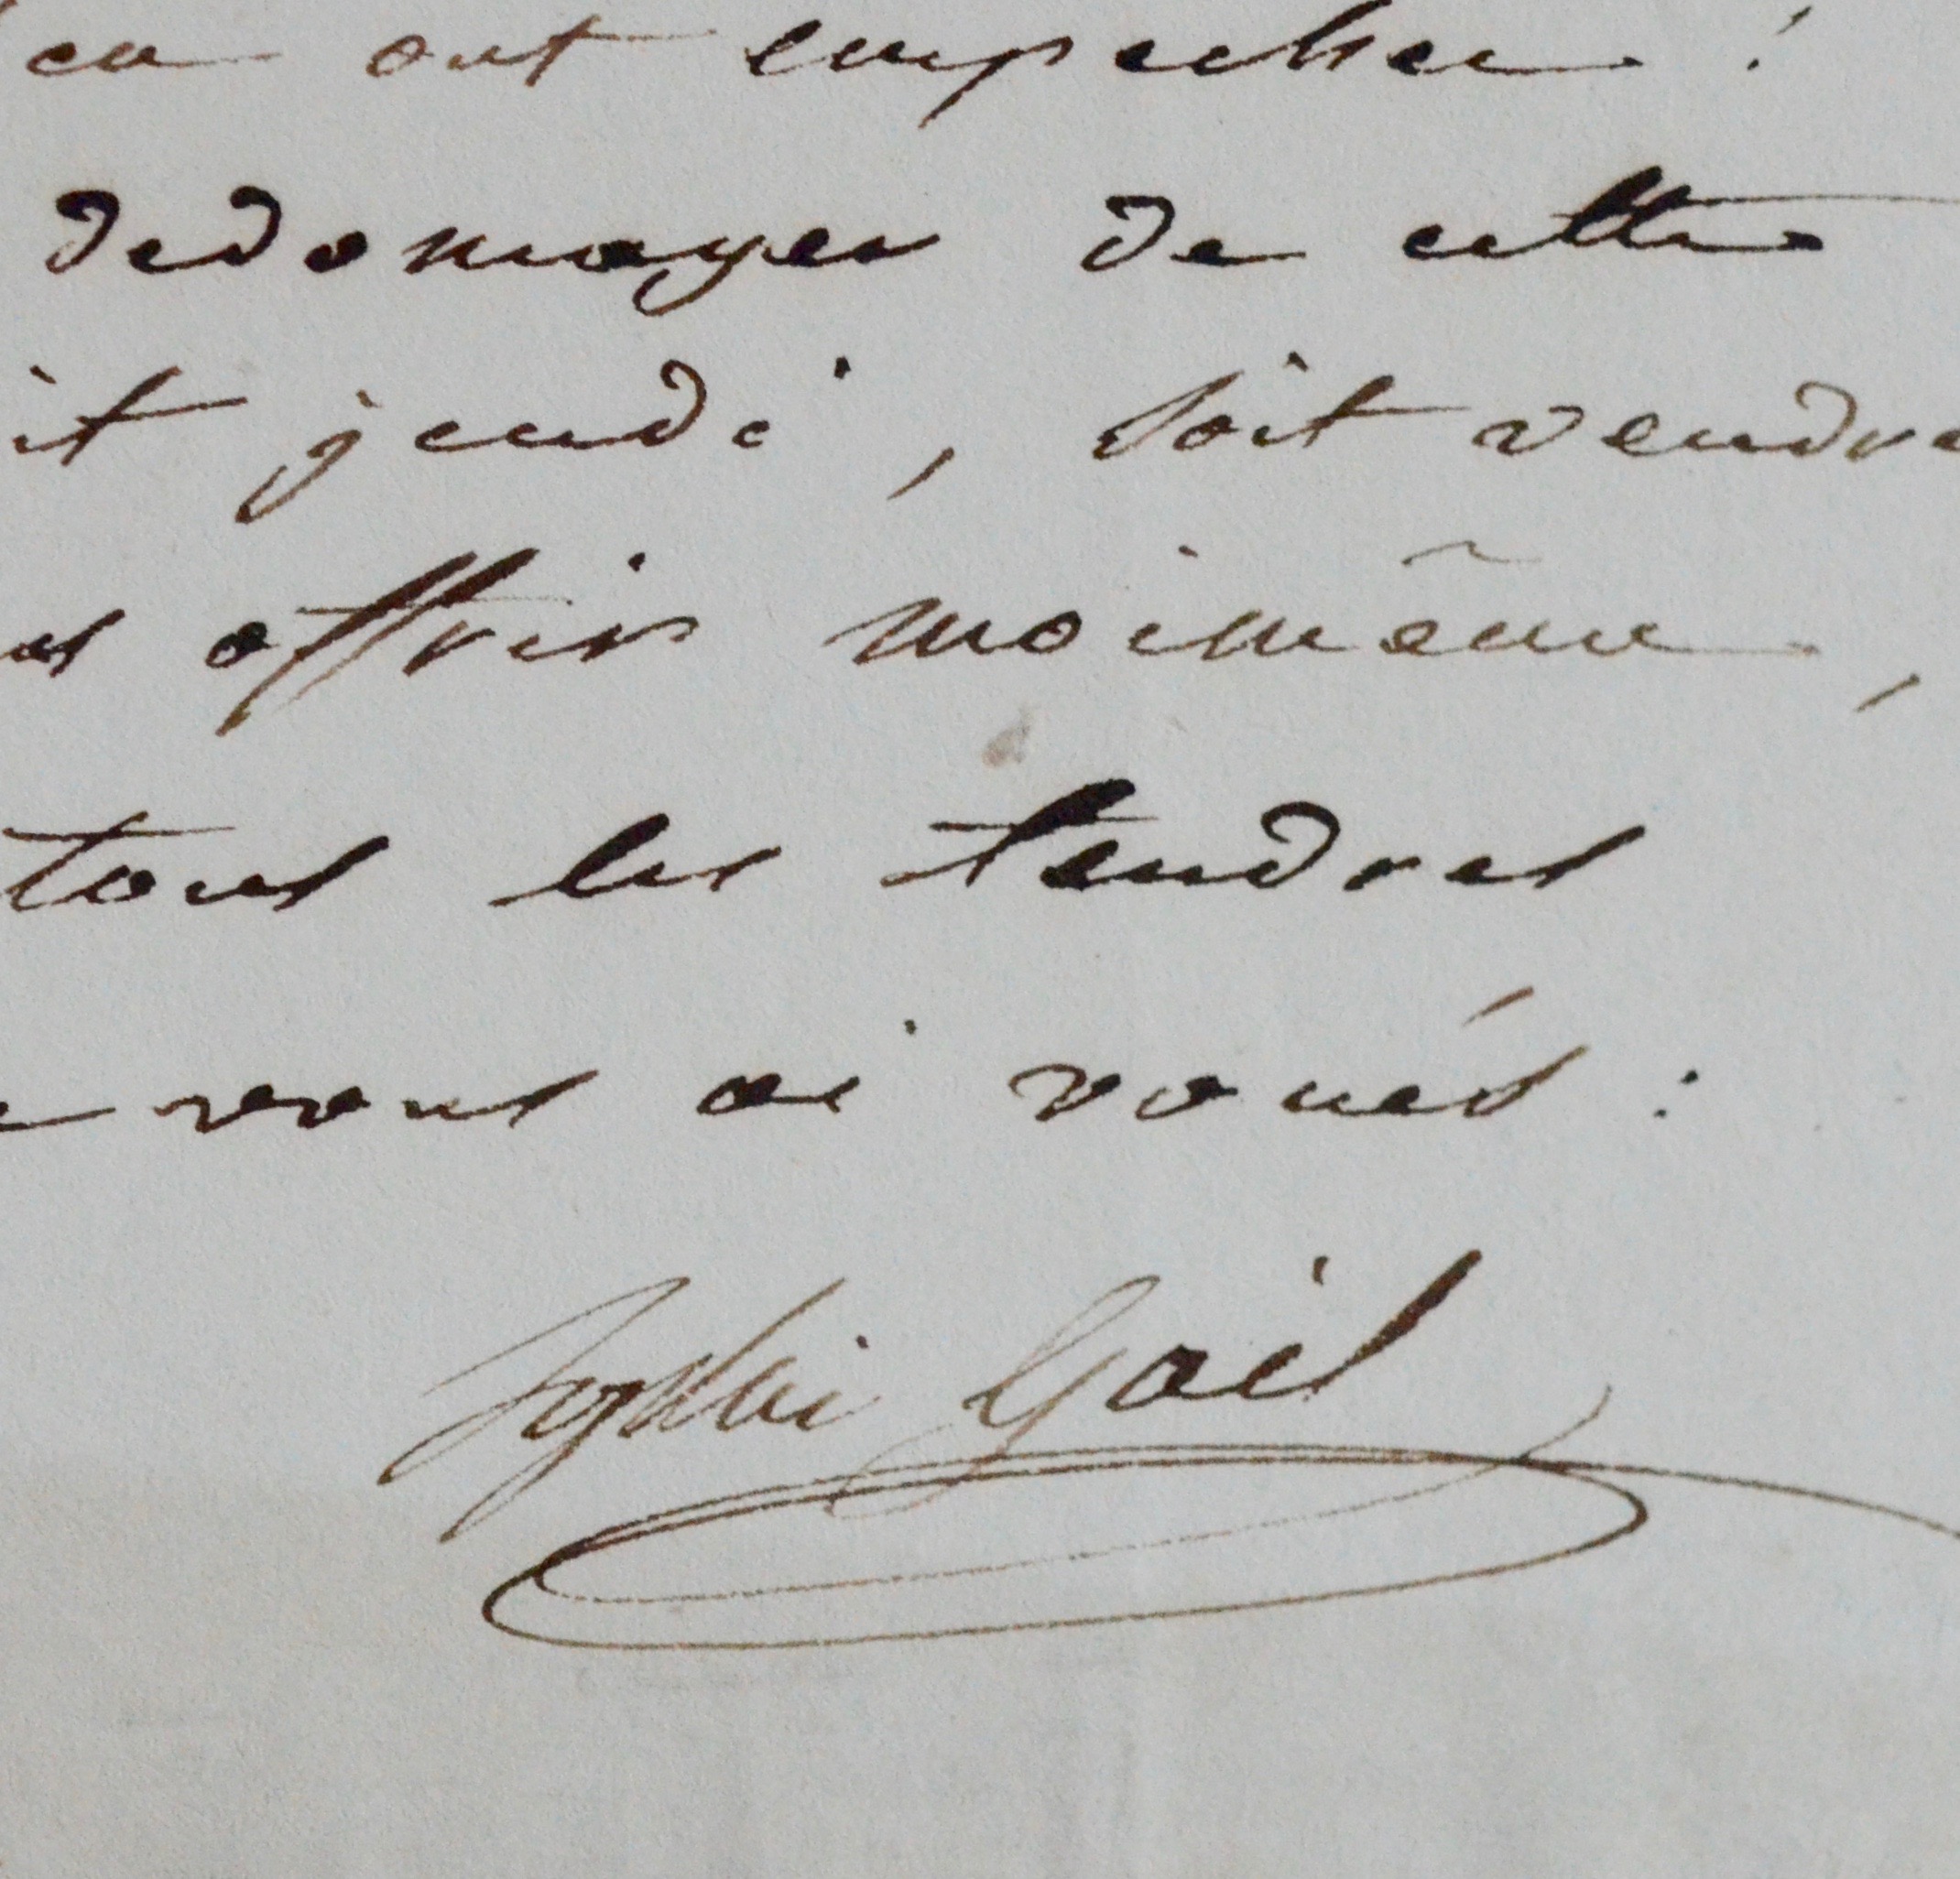 en ont empecher !
dedomager de cette
it jeudi, soit vendre
us offrir moimême,
tous les tendres
e vous ai voués :
Sophie Gail